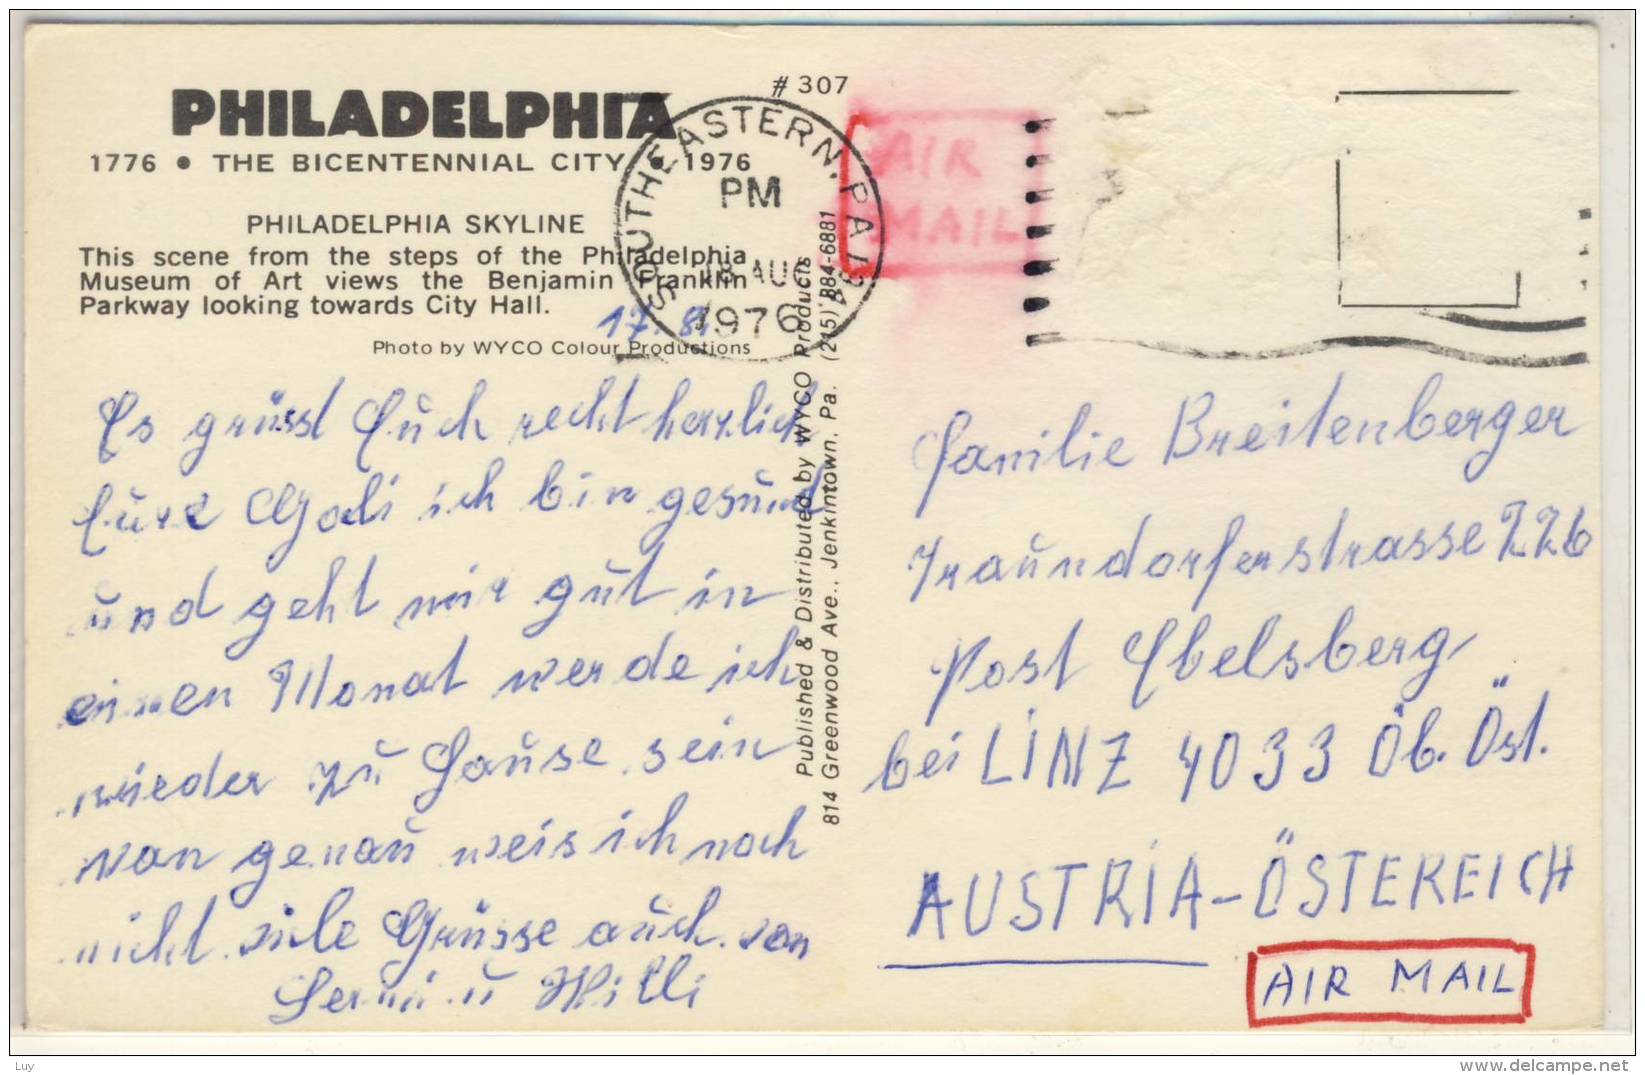 # 307
PHILADELPHIA
1776 • THE BICENTENNIAL CITY • 1976
PHILADELPHIA SKYLINE
This scene from the steps of the Philadelphia
Museum of Art views the Benjamin Franklin
Parkway looking towards City Hall.
Photo by WYCO Colour Productions
SOUTHEASTERN, PA
PM
18 AUG
1976
AIR
MAIL
Published & Distributed by WYCO Products
814 Greenwood Ave., Jenkintown, Pa. (215) 884-6881
17. 8.
Es grüsst Euch recht herzlich
Eure Godi ich bin gesund
und geht mir gut in
einen Monat werde ich
wieder zu Hause sein
wan genau weis ich noch
nicht viele Grüsse auch von
u Willi
Familie Breitenberger
Traundorferstrasse 226
Post Ebelsberg
bei LINZ 4033 Öb. Öst.
AUSTRIA-ÖSTEREICH
AIR MAIL
Luy
www.delcampe.net